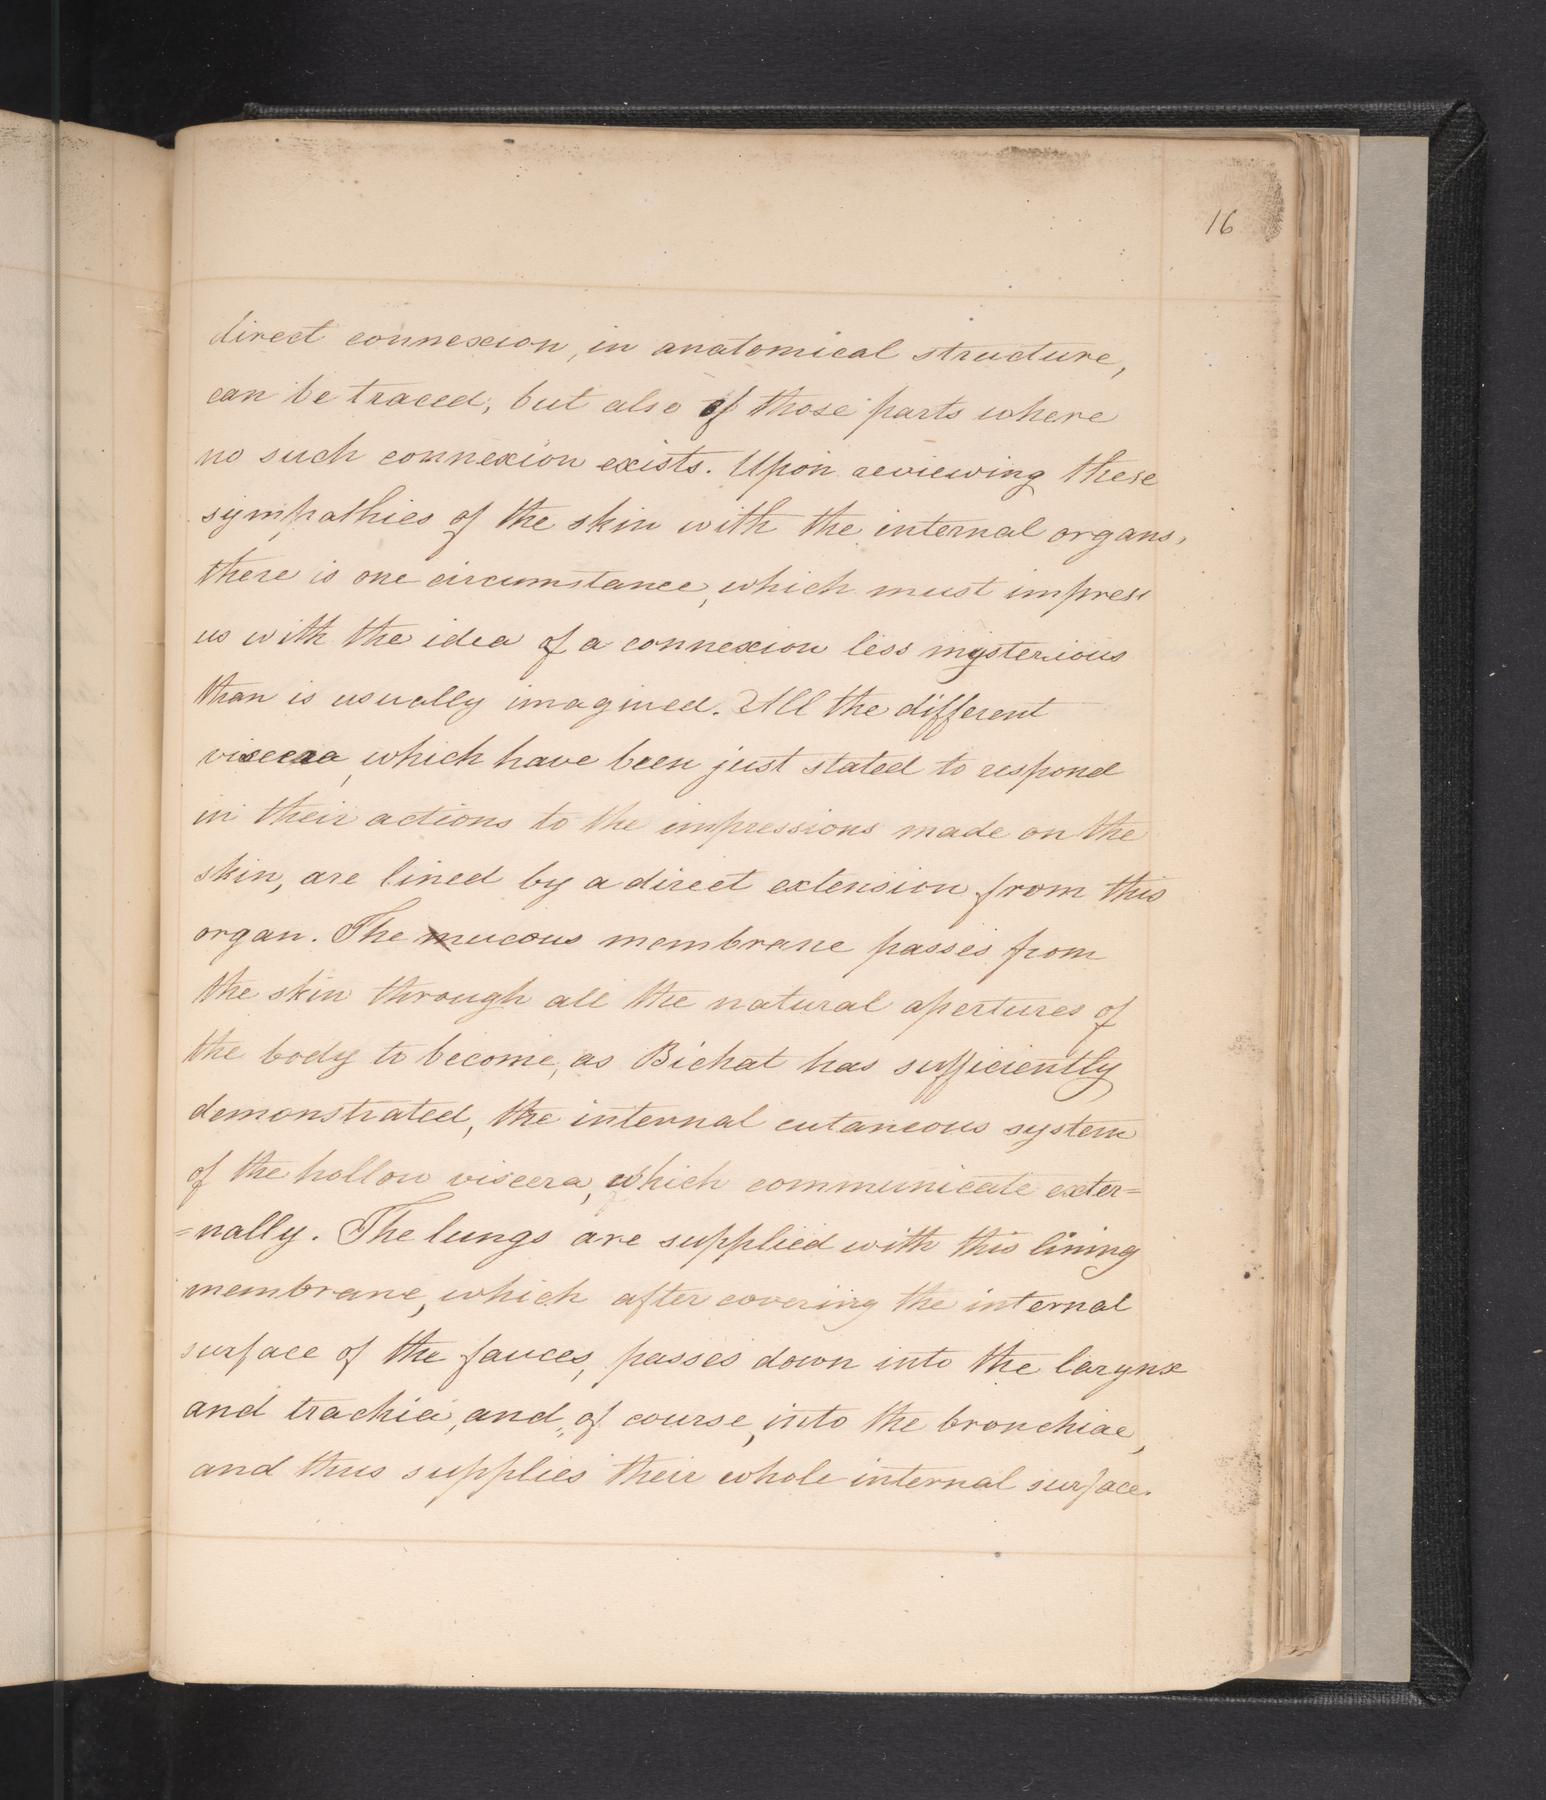 16
direct connexion, in anatomical structure,
can be traced, but also of those parts where
no such connexion exists. Upon reviewing these
sympathies of the skin with the internal organs,
there is one circumstance, which must impress
us with the idea of a connexion less mysterious
than is usually imagined. All the different
viscera, which have been just stated to respond
in their actions to the impressions made on the
skin, are lined by a direct extension from this
organ. The mucous membrane passes from
the skin through all the natural apertures of
the body to become, as Bichat has sufficiently
demonstrated, the internal cutaneous system
of the hollow viscera, which communicate exter=
=nally. The lungs are supplied with this lining
membrane, which after covering the internal
surface of the fauces, passes down into the larynx
and trachia, and, of course, into the bronchiae,
and thus supplies their whole internal surface.